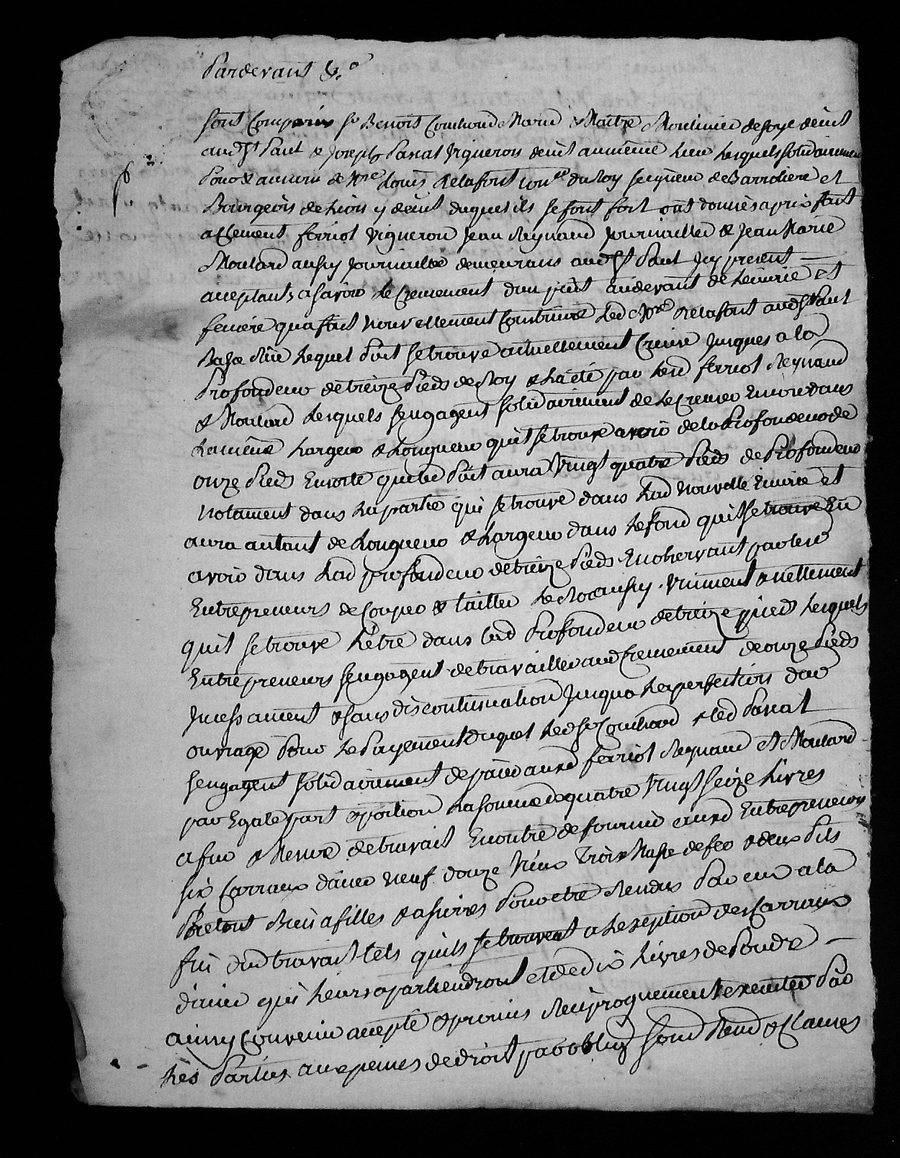 Pardevant &c
sont Comparus Sr Benoit Couchoud Marie & Maitre Moulinier de soye deurt
aud St Paul & Joseph Panat Vigneron deurt au meme lieu lesquels solidairement
pour & au nom de Mre Louis Relafont con.er du Roy secqueur de Barroliere et
Bourgeois de Lion y deurt duquel ils se font fort ont donnés a prix fait
a Clement ferriot Vigneron Jean Reynaud Journaillier & Jean Marie
Moulard aussy Journaillier demeurans aud St Paul Icy present
aceptants a savoir le Creusement d'un puit audevant de Lecurie et
feniere qua fait nouvellement Construire led Mre Relafont aud St Paul
lequel Puit se trouve actuellement Creusé jusques a la
Profondeur de treize Pieds de Roy & ha été par lesd ferriot Reynaud
& Moulard lesquels s'engagent solidairement de le Creuser Encore dans
la même largeur & Longueur quil se trouve avoir de la Profondeur de
onze Pieds En sorte que led Puit aura Vingt quatre Pieds de Profondeur
notament dans la partie qui se trouve dans lad nouvelle Ecurie et
aura autant de Longueur & Largeur dans le fond quil se trouve En
avoir dans lad profondeur de treize Pieds En observant par lesd
Entrepreneurs de Couper & tailler le Roc aussy Uniment & nettement
quil se trouve l'être dans lad Profondeur de treize pieds lesquels
Entrepreneurs sengagent de travailler aud Creusement de onze Pieds
Incessament & sans discontinuation Jusqua la perfection dud
ouvrage Pour le Payement duquel led Sr Couchoud & led Panat
sengagent solidairement de païer auxd ferriot Reynaud et Moulard
par Egale part & portion la somme de quatre Vingt seize Livres
a fur & Mesure de travail En outre de fournir auxd Entrepreneurs
six Carraux d'acier neuf douze Vieux trois Masse de fer & deux Pils
Le tout Bien afilés & aserrés Pour etre Rendus Par eux a la
fin dud travail tels quils se trouvent a lexeption des Carraux
d'acier qui leurs apartiendront et de dix Livres de Poudre
ainsy Convenu accepté & promis Reciproquement executer Par
les Parties aux peines de droit par oblig soum Renon & Clauses